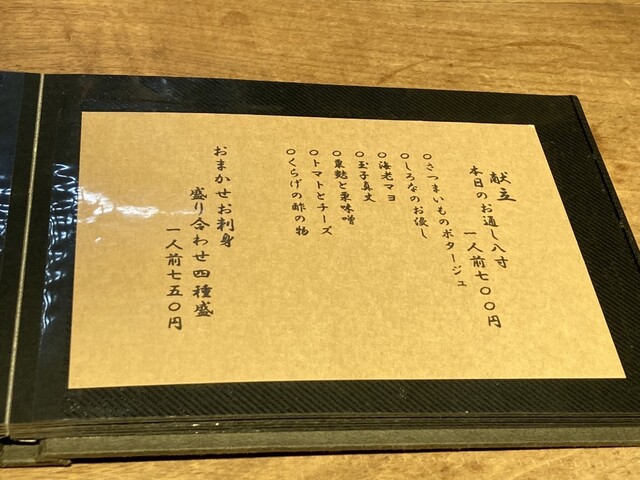 献立
本日のお通し八寸
一人前七〇〇円
〇さつまいものポタージュ
〇しろなのお浸し
〇海老マヨ
〇玉子真丈
〇粟麩と粟味噌
〇トマトとチーズ
〇くらげの酢の物
おまかせお刺身
盛り合わせ四種盛
一人前七五〇円